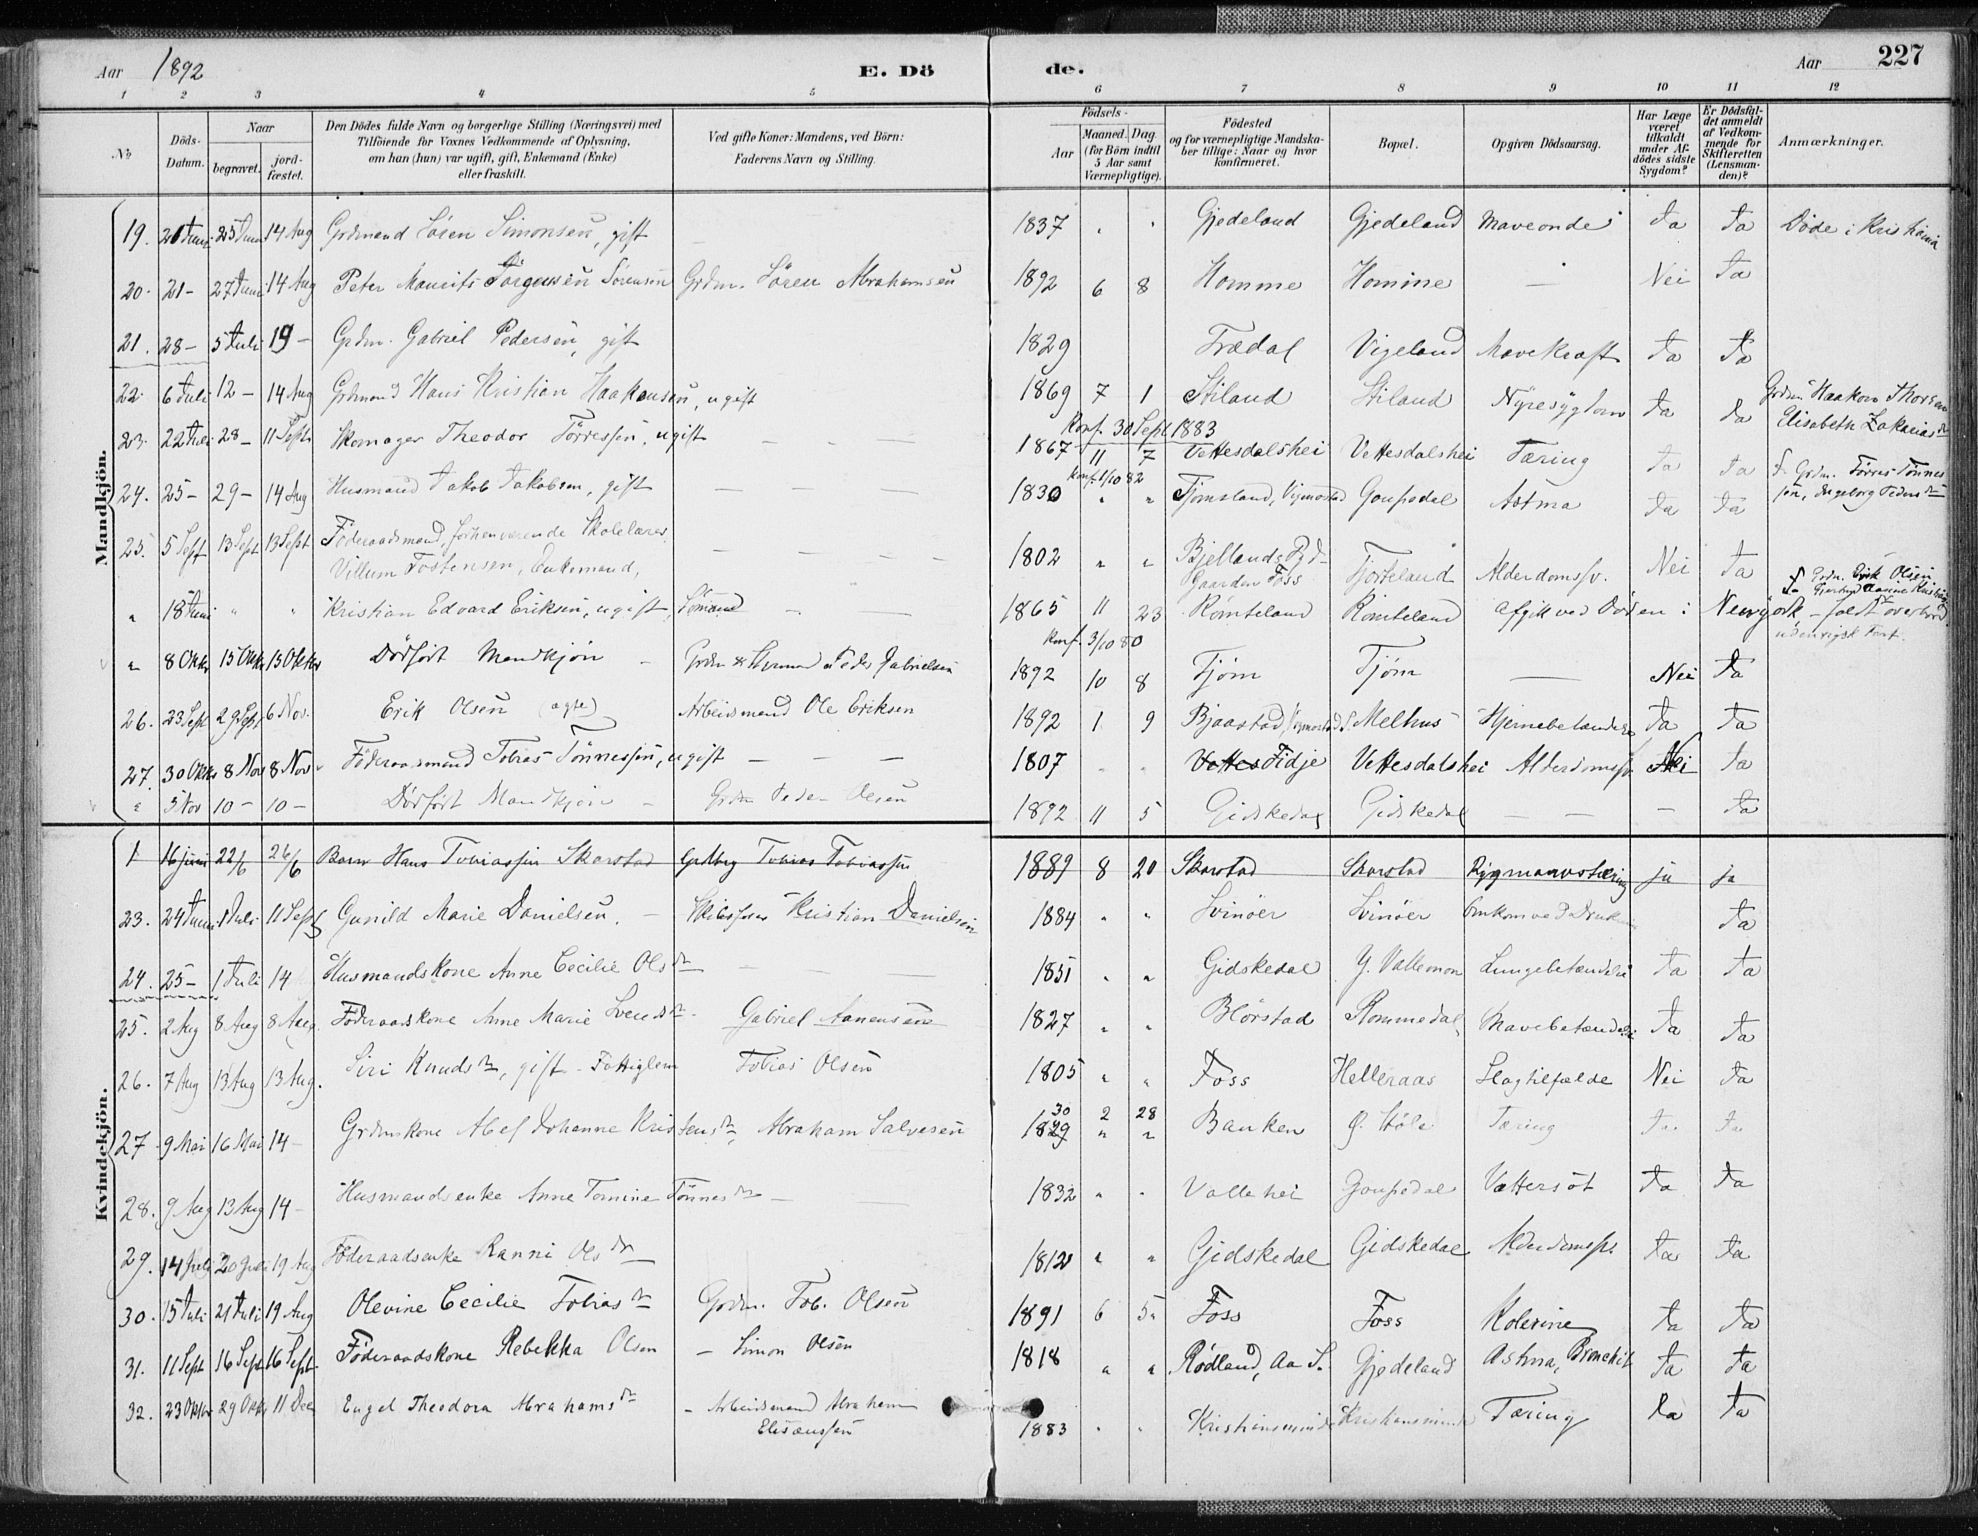 Aar 1892 E. Dö de. Aar 227
1 2 3 4 5 6 7 8 9 10 11 12
No Döds-Datum. Naar begravet. jordfæstet. Den Dödes fulde Navn og borgerlige Stilling (Næringsvei) med Tilföiende for Voxnes Vedkommende af Oplysning, om han (hun) var ugift, gift, Enkemand (Enke) eller fraskilt. Ved gifte Koner: Mandens, ved Börn: Faderens Navn og Stilling. Födsels- Aar Maaned. Dag. (for Börn indtil 5 Aar samt Værnepligtige). Födested og for værnepligtige Mandskaber tillige: Naar og hvor konfirmeret. Bopæl. Opgiven Dödsaarsag. Har Læge været tilkaldt under Afdödes sidste Sygdom? Er Dödsfaldet anmeldt af Vedkommende for Skifteretten (Lensmanden)? Anmærkninger.
Mandkjön.
19. 20 Juni 25 Juni 14 Aug Grdmand Sören Simonsen, gift 1837 " " Gjedeland Gjedeland Maveonde Ja Ja Döde i Kristiania
20. 21- 27 Juni 14 Aug Peter Maurits Jörgensen Sörensen Grdm. Sören Abrahamsen 1892 6 8 Homme Homme — Nei Ja
21. 28- 5 Juli 19 - Grdm. Gabriel Pedersen, gift 1829 Trædal Vigeland Mavekræft Ja Ja
22. 6 Juli 12 - 14 Aug Grdmand Hans Kristian Haakensen, ugift 1869 7 1 Stiland Stiland Nyresygdom Ja Ja Grdm. Haakon Thorsen
Konf. 30 Sept 1883 Elisabeth Zakarias dtr
23. 22 Juli 28 - 11 Sept Skomager Theodor Törressen, ugift — — — 1867 11 7 Vettesdalshei Vettesdalshei Tæring Ja Ja Grdm. Törres Tönnes
Konf. 1/10 82 sen, Ingeborg Peders dtr
24. 25 - 29 - 14 Aug Husmand Jakob Jakobsen, gift — — — 1830 " " Tjomsland, Vigmostad Goupedal Astma Ja Ja
25. 5 Sept 13 Sept 13 Sept Föderaadsmand, forhenværende Skolelærer
Villum Tostensen, Enkemand, — — — 1802 " " Bjellands Pgd. Gaarden Foss Tjorteland Alderdomssv. Nei Ja
" 18 Juni " " Kristian Edvard Eriksen, ugift, Sömand — — 1865 11 23 Römteland Römteland Afgik ved Döden i Newyörk - faldt overbord
Konf. 3/10 80 udenrigsk Fart.
" 8 Oktbr 15 Oktb 15 Oktbr Dödfödt Mandkjön - Grdm & Styrmand Peder Gabrielsen 1892 10 8 Tjöm Tjöm — Nei Ja
26. 23 Sept 29 Sept 6 Nov. Erik Olsen (ægte) Arbeidsmand Ole Eriksen 1892 1 9 Bjaastad, Vigmostad S. Melhus Hjernebetændelse Ja Ja
27. 30 Oktbr 8 Nov 8 Nov Föderaadsmand Tobias Tönnessen, ugift — — — 1807 " " Fidje Vettesdalshei Alderdomssv Nei Ja
" 5 Nov 10 - 10 - Dödfödt Mandkjön - Grdm Peder Olsen 1892 11 5 Gidskedal Gidskedal — — — Ja
Kvindekjön.
1 16 juni 22/6 26/6 Barn Hans Tobiassen Skarstad Grdbrg Tobias Tobiassen 1889 8 20 Skarstad Skarstad Rygmarvstæring ja ja
23. 24 Juni 1 Juli 11 Sept Gunild Marie Danielsen. - Kristian Danielsen 1884 " " Svinöer Svinöer Omkom ved Drukning Ja
24. 25 - 1 Juli 14 Husmandskone Anne Cecilie Ols dtr — — — 1851 " " Gidskedal Y. Vallemon Lungebetændelse Ja Ja
25. 2 Aug 8 Aug 8 Aug. Föderaadskone Anne Marie Svends dtr. Gabriel Aanensen 1827 " " Blörstad Rommedal Mavebetændelse Ja Ja
26. 7 Aug 13 Aug 13 Aug. Siri Knuds dtr, gift - Fattiglem Tobias Olsen 1805 " " Foss Helleraas Slagtilfælde Nei Ja
27. 9 Mai 16 Mai 14 - Grdmskone Abel Johanne Kristens dtr, Abraham Salvesen 1829 30 2 28 " " Banken Ö. Höle Tæring Ja Ja
28. 9 Aug 13 Aug 14 - Husmandsenke Anne Tomine Tönnes dtr — — 1832 " " Vallehei Goupedal Vattersot Ja Ja
29. 14 Juli 20 Juli 19 Aug Föderaadsenke Ranni Ols dtr 1812 " " Gidskedal Gidskedal Alderdomssv. Ja Ja
30. 15 Juli 21 Juli 19 Aug Olevine Cecilie Tobias dtr Grdm. Tob. Olsen 1891 6 5 Foss Foss Kolerine Ja Ja
31. 11 Sept 16 Sept 16 Sept. Föderaadskone Rebekka Olsen - Simon Olsen 1818 " " Rödland, Aa S. Gjedeland Astma, Bronchit Ja Ja
32. 23 Oktbr 29 Oktb 11 Dec Engel Theodora Abrahams dtr - Arbeidsmand Abraham
Elisæussen 1883 " " Kristiansminde Kristiansminde Tæring Ja Ja